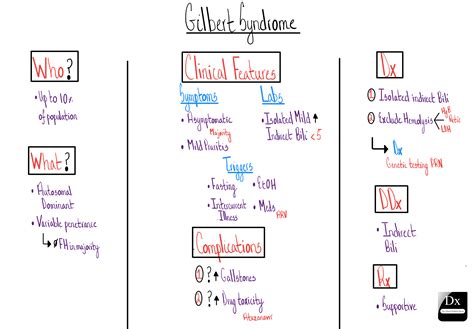 Gilbert Syndrome
Who?
• Up to 10%
of population
What?
• Autosomal
Dominant
• Variable penetrance
↳ ØFH in majority
Clinical Features
Symptoms
• Asymptomatic
Majority
• Mild Pruritus
Labs
• Isolated Mild ↑
Indirect Bili <5
Triggers
• Fasting
• Intercurrent
Illness
• EtOH
• Meds
Complications
① ? ↑ Gallstones
② ? ↑ Drug toxicity
Dx
① Isolated indirect Bili
② Exclude Hemolysis
HgB
Retic
LDH
↳ Dx
Genetic testing PRN
DDx
• Indirect
Bili
Rx
• Supportive
Dx